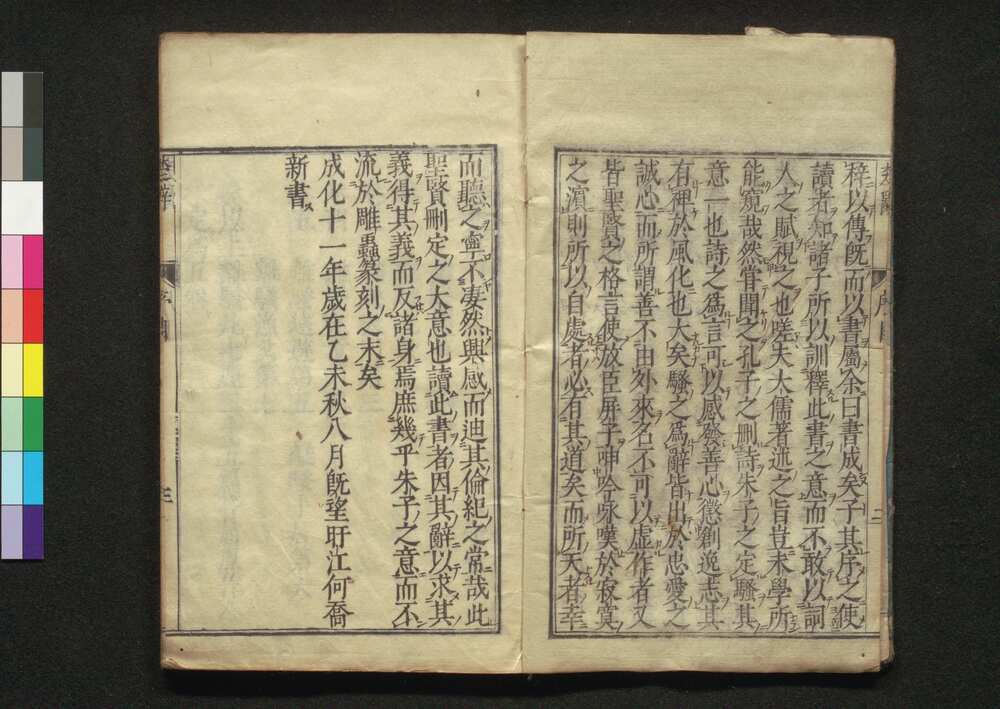 梓以傳既而以書屬余曰書成矣子其序之使
讀者知諸子所以訓釋此書之意而不敢以詞
人之賦視之也嗟夫大儒著述之旨豈末學所
能窺哉然嘗聞之孔子之刪詩朱子之定騷其
意一也詩之爲言可以感發善心懲創逸志其
有裨於風化也大矣騷之爲辭皆出於忠愛之
誠心而所謂善不由外來名不可以虛作者又
皆聖賢之格言使放臣屏子呻吟咏嘆於寂寞
之濵則所以自處者必有其道矣而所天者幸
而聽之寧不凄然興感而迪其倫紀之常哉此
聖賢刪定之大意也讀此書者因其辭以求其
義得其義而反諸身焉庶幾乎朱子之意而不
流於雕蟲篆刻之末矣
成化十一年歲在乙未秋八月既望盱江何喬
新書
楚辭
三